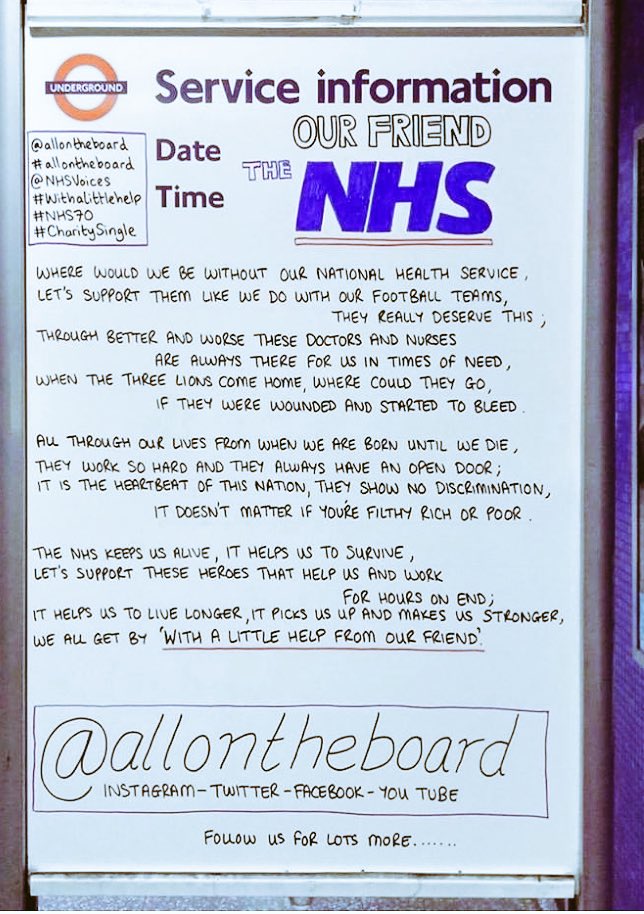 UNDERGROUND
Service information
Date
Time
OUR FRIEND
THE NHS
@allontheboard
#allontheboard
@NHSVoices
#Withalittlehelp
#NHS70
#CharitySingle
WHERE WOULD WE BE WITHOUT OUR NATIONAL HEALTH SERVICE,
LET'S SUPPORT THEM LIKE WE DO WITH OUR FOOTBALL TEAMS,
THEY REALLY DESERVE THIS;
THROUGH BETTER AND WORSE THESE DOCTORS AND NURSES
ARE ALWAYS THERE FOR US IN TIMES OF NEED,
WHEN THE THREE LIONS COME HOME, WHERE COULD THEY GO,
IF THEY WERE WOUNDED AND STARTED TO BLEED.
ALL THROUGH OUR LIVES FROM WHEN WE ARE BORN UNTIL WE DIE,
THEY WORK SO HARD AND THEY ALWAYS HAVE AN OPEN DOOR;
IT IS THE HEARTBEAT OF THIS NATION, THEY SHOW NO DISCRIMINATION,
IT DOESN'T MATTER IF YOU'RE FILTHY RICH OR POOR.
THE NHS KEEPS US ALIVE, IT HELPS US TO SURVIVE,
LET'S SUPPORT THESE HEROES THAT HELP US AND WORK
FOR HOURS ON END;
IT HELPS US TO LIVE LONGER, IT PICKS US UP AND MAKES US STRONGER,
WE ALL GET BY 'WITH A LITTLE HELP FROM OUR FRIEND'.
@allontheboard
INSTAGRAM - TWITTER - FACEBOOK - YOU TUBE
FOLLOW US FOR LOTS MORE.......